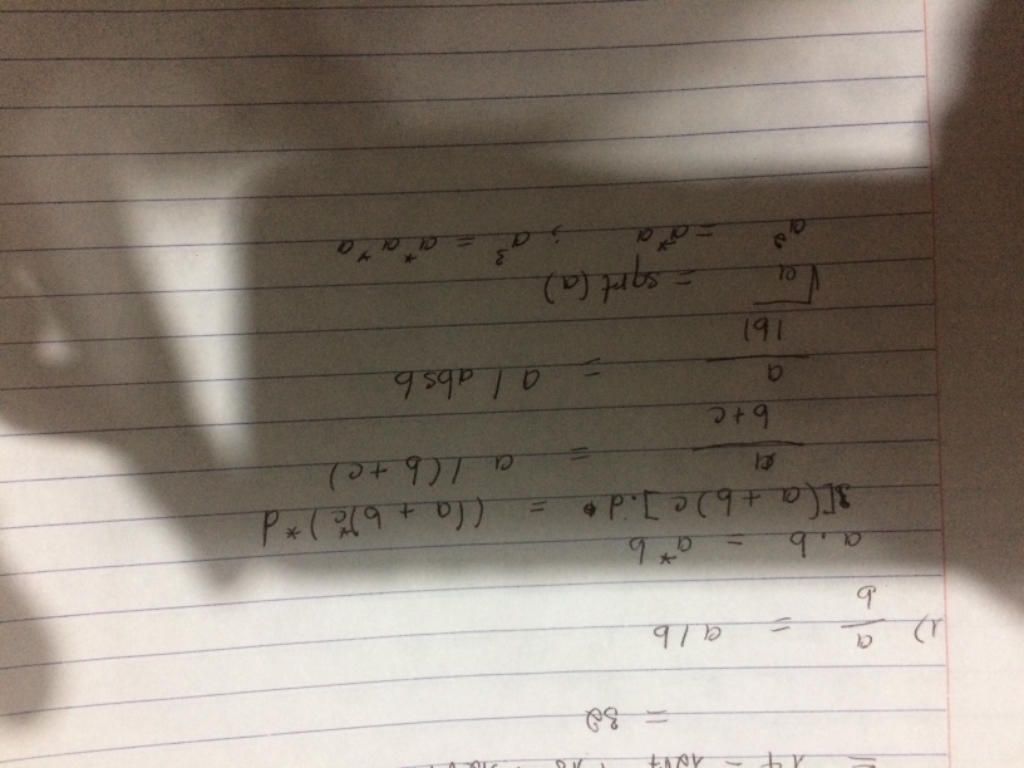 = 32
1) a/b = a/b
a.b = a*b
[(a+b)c].d = ((a+b)*c)*d
a/(b+c) = a/(b+c)
a/|b| = a/absb
√a = sqrt(a)
a² = a*a ; a³ = a*a*a